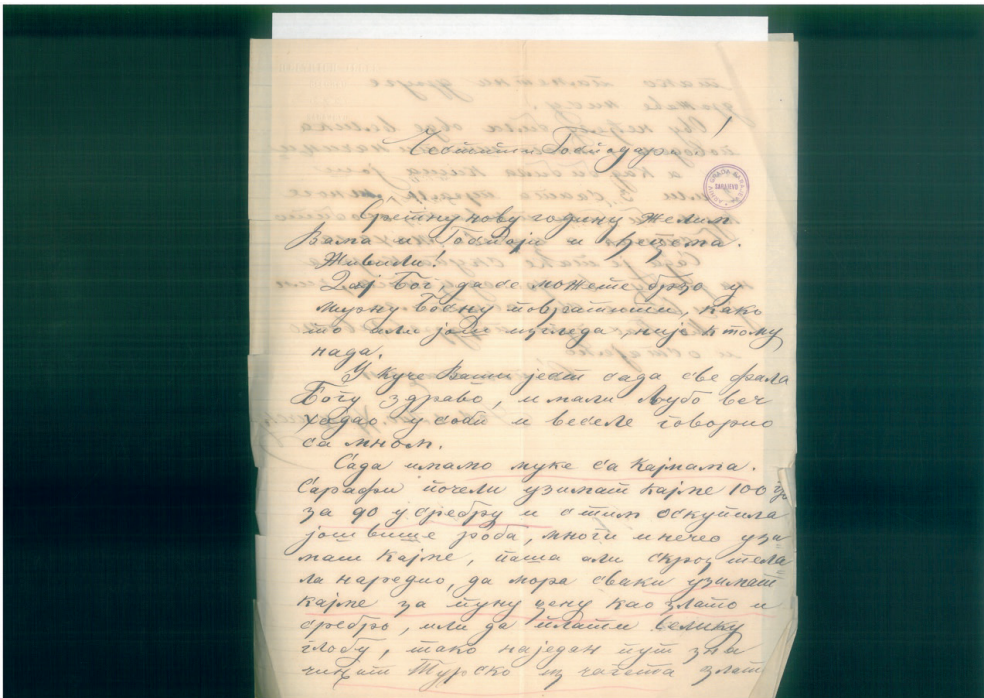 Честити Господару!
SARAJEVO
Сретну нову годину желим
Вама и Госпоји и
Живили!
Дај Бог, да се можете брзо у
мирну Босну повратити, како
то али још изгледа, није к тому
нада.
У куче Ваши јест сада све фала
Богу здраво, и мали Љубо веч
ходао у соби и весело говорио
са мном.
Сада имамо муке са Кајмама.
Сарафи почели узимат кајме 100 гр
за 90 у сребру и с тим оскупила
још више роба, многи и нечео узи
мат кајме, паша али скроз тела
ла наредио, да мора сваки узимат
кајме за пуну цену као злато и
сребро, или да плати велику
глобу, тако наједан пут
Турско из злат